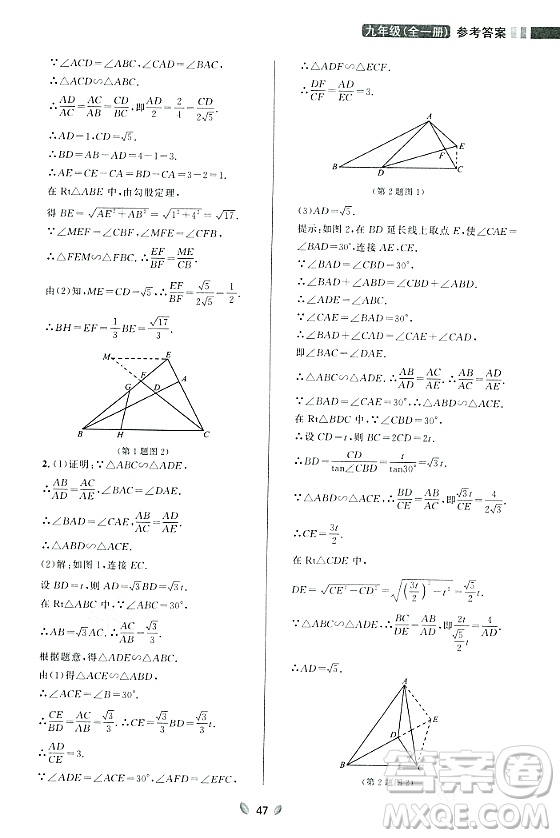 九年级(全一册) 参考答案
∵∠ACD=∠ABC,∠BAC=∠CAD,
∴△ACD∽△ABC.
∴AD/AC=AC/AB=CD/BC,即AD/2=2/4=CD/2√5.
∴AD=1,CD=√5.
∴BD=AB-AD=4-1=3.
∴AE=CE-AC=3-2=1.
在Rt△ABE中,由勾股定理,
得BE=√AE²+AB²=√1²+4²=√17.
∵∠MEF=∠CBF,∠MFE=∠CFB,
∴△FEM∽△FBC.∴EF/BF=ME/BC.
由(2)知,ME=CD=√5,∴EF/BF=√5/2√5=1/2.
∴BH=EF=1/3BE=√17/3.
M E F A G D B H C
(第1题图2)
2.(1)证明:∵△ABC∽△ADE,
∴AB/AD=AC/AE,∠BAC=∠DAE.
∴∠BAD=∠CAE,AB/AC=AD/AE.
∴△ABD∽△ACE.
(2)解:如图1,连接CE.
设BD=t,则AD=CD=√3t.
在Rt△ABC中,∵∠ABC=30°,
∴AB=√3AC.∴AC/AB=√3/3.
根据题意,得△ABC∽△ADE.
由(1)得△ACE∽△ABD.
∴∠ACE=∠B=30°.
∴CE/BD=AC/AB=√3/3.∴CE=√3/3BD=√3/3t.
∴AD/CE=3.
∵∠ADE=∠ACE=30°,∠AFD=∠EFC,
∴△ADF∽△ECF.
∴DF/CF=AD/EC=3.
A E F B D C
(第2题图1)
(3)AD=√5.
提示:如图2,在BD延长线上取点E,使∠CAE=∠BAD=30°,连接AE,CE.
∵∠BAD=∠CBD=30°,
∴∠BAD+∠ABD=∠CBD+∠ABD.
∴∠ADE=∠ABC.∴△ADE∽△ABC.
∵∠CAE=∠BAD=30°,
∴∠CAE+∠DAC=∠BAD+∠DAC,
即∠BAC=∠DAE.
∴△ABC∽△ADE.∴AB/AD=AC/AE.∴AB/AC=AD/AE.
∵∠BAD=∠CAE,∴△ABD∽△ACE.
在Rt△BDC中,∵∠CBD=30°,
∴设CD=t,则BC=2CD=2t.
∴BD=CD/tan∠CBD=t/tan30°=√3t.
∵△ABD∽△ACE,∴BD/CE=AB/AC,即√3t/CE=4/2√3.
∴CE=3t/2.
在Rt△CDE中,
DE=√CE²-CD²=√(3t/2)²-t²=√5/2t.
∵△ABC∽△ADE,∴BC/DE=AB/AD,即2t/(√5/2t)=4/AD.
∴AD=√5.
A E D B C
(第2题图2)
47
答案圈